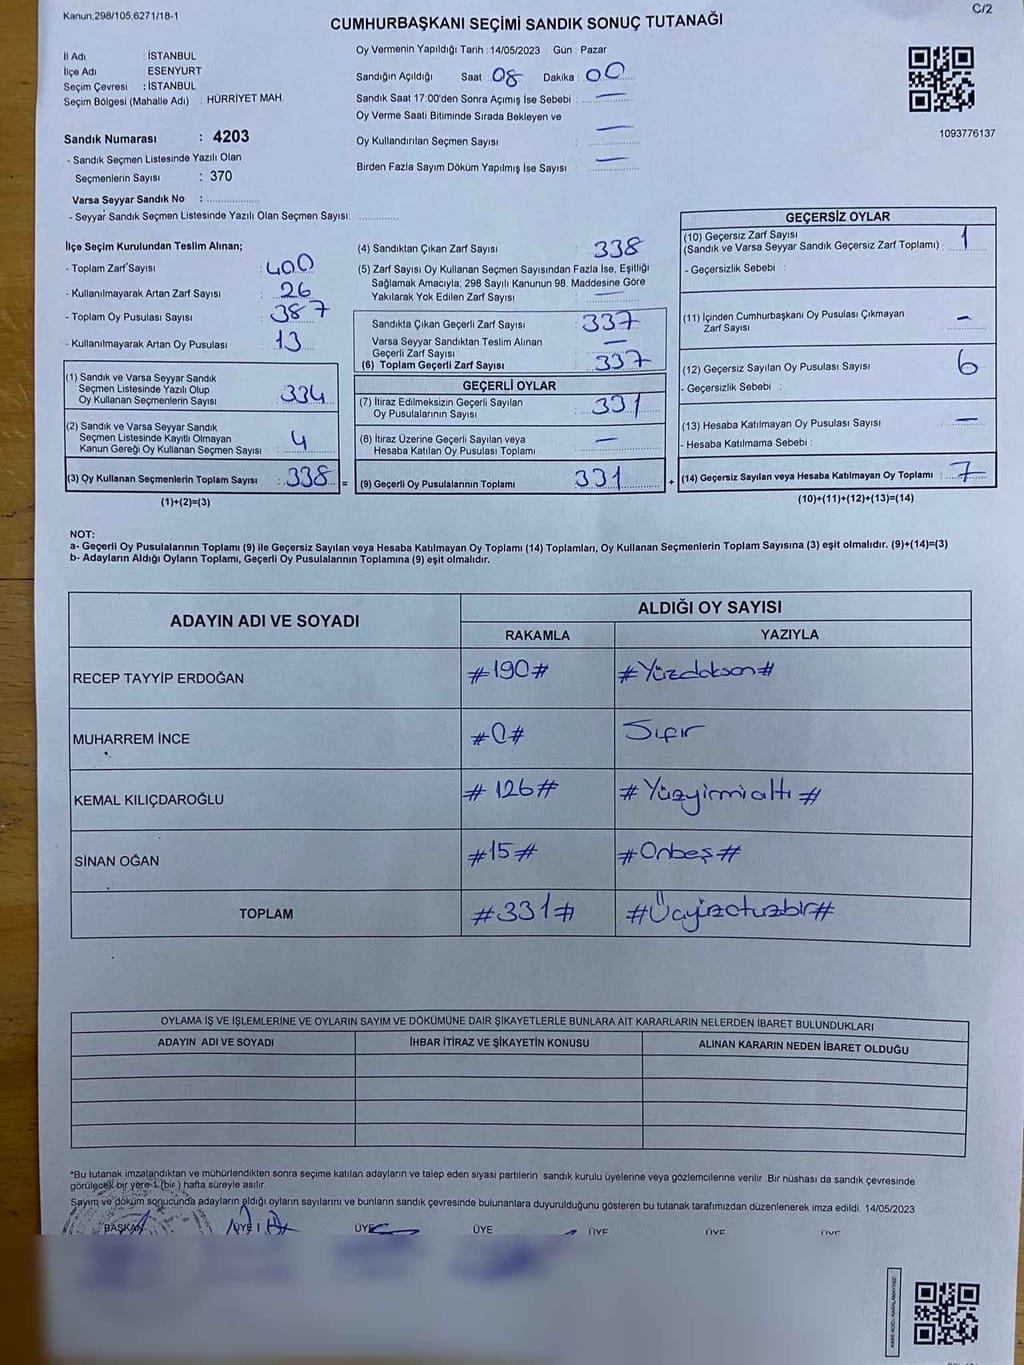 Kanun:298/105;6271/18-1
C/2
CUMHURBAŞKANI SEÇİMİ SANDIK SONUÇ TUTANAĞI
İl Adı : İSTANBUL
İlçe Adı : ESENYURT
Seçim Çevresi : İSTANBUL
Seçim Bölgesi (Mahalle Adı) : HÜRRİYET MAH.
Sandık Numarası : 4203
- Sandık Seçmen Listesinde Yazılı Olan
Seçmenlerin Sayısı : 370
Varsa Seyyar Sandık No :
- Seyyar Sandık Seçmen Listesinde Yazılı Olan Seçmen Sayısı:
Oy Vermenin Yapıldığı Tarih : 14/05/2023 Gün : Pazar
Sandığın Açıldığı Saat : 08 Dakika : 00
Sandık Saat 17:00'den Sonra Açımış İse Sebebi : —
Oy Verme Saati Bitiminde Sırada Bekleyen ve
Oy Kullandırılan Seçmen Sayısı : —
Birden Fazla Sayım Döküm Yapılmış İse Sayısı : —
1093776137
İlçe Seçim Kurulundan Teslim Alınan;
- Toplam Zarf Sayısı : 400
- Kullanılmayarak Artan Zarf Sayısı : 26
- Toplam Oy Pusulası Sayısı : 387
- Kullanılmayarak Artan Oy Pusulası : 13
(1) Sandık ve Varsa Seyyar Sandık
Seçmen Listesinde Yazılı Olup
Oy Kullanan Seçmenlerin Sayısı : 334
(2) Sandık ve Varsa Seyyar Sandık
Seçmen Listesinde Kayıtlı Olmayan
Kanun Gereği Oy Kullanan Seçmen Sayısı : 4
(3) Oy Kullanan Seçmenlerin Toplam Sayısı : 338 =
(1)+(2)=(3)
(4) Sandıktan Çıkan Zarf Sayısı : 338
(5) Zarf Sayısı Oy Kullanan Seçmen Sayısından Fazla İse, Eşitliği
Sağlamak Amacıyla; 298 Sayılı Kanunun 98. Maddesine Göre
Yakılarak Yok Edilen Zarf Sayısı : —
Sandıkta Çıkan Geçerli Zarf Sayısı : 337
Varsa Seyyar Sandıktan Teslim Alınan
Geçerli Zarf Sayısı : —
(6) Toplam Geçerli Zarf Sayısı : 337
GEÇERLİ OYLAR
(7) İtiraz Edilmeksizin Geçerli Sayılan
Oy Pusulalarının Sayısı : 331
(8) İtiraz Üzerine Geçerli Sayılan veya
Hesaba Katılan Oy Pusulası Toplamı : —
(9) Geçerli Oy Pusulalarının Toplamı : 331 +
GEÇERSİZ OYLAR
(10) Geçersiz Zarf Sayısı
(Sandık ve Varsa Seyyar Sandık Geçersiz Zarf Toplamı) : 1
- Geçersizlik Sebebi :
(11) İçinden Cumhurbaşkanı Oy Pusulası Çıkmayan
Zarf Sayısı : —
(12) Geçersiz Sayılan Oy Pusulası Sayısı : 6
- Geçersizlik Sebebi :
(13) Hesaba Katılmayan Oy Pusulası Sayısı : —
- Hesaba Katılmama Sebebi :
(14) Geçersiz Sayılan veya Hesaba Katılmayan Oy Toplamı : 7
(10)+(11)+(12)+(13)=(14)
NOT:
a- Geçerli Oy Pusulalarının Toplamı (9) ile Geçersiz Sayılan veya Hesaba Katılmayan Oy Toplamı (14) Toplamları, Oy Kullanan Seçmenlerin Toplam Sayısına (3) eşit olmalıdır. (9)+(14)=(3)
b- Adayların Aldığı Oyların Toplamı, Geçerli Oy Pusulalarının Toplamına (9) eşit olmalıdır.
ADAYIN ADI VE SOYADI
ALDIĞI OY SAYISI
RAKAMLA YAZIYLA
RECEP TAYYİP ERDOĞAN #190# #Yüzdokson#
MUHARREM İNCE #0# Sıfır
KEMAL KILIÇDAROĞLU #126# #Yüzyirmialtı#
SİNAN OĞAN #15# #Onbeş#
TOPLAM #331# #Üçyüzotuzbir#
OYLAMA İŞ VE İŞLEMLERİNE VE OYLARIN SAYIM VE DÖKÜMÜNE DAİR ŞİKAYETLERLE BUNLARA AİT KARARLARIN NELERDEN İBARET BULUNDUKLARI
ADAYIN ADI VE SOYADI İHBAR İTİRAZ VE ŞİKAYETİN KONUSU ALINAN KARARIN NEDEN İBARET OLDUĞU
*Bu tutanak imzalandıktan ve mühürlendikten sonra seçime katılan adayların ve talep eden siyasi partilerin sandık kurulu üyelerine veya gözlemcilerine verilir. Bir nüshası da sandık çevresinde
görülecek bir yere 1 (bir) hafta süreyle asılır.
Sayım ve döküm sonucunda adayların aldığı oyların sayılarını ve bunların sandık çevresinde bulunanlara duyurulduğunu gösteren bu tutanak tarafımızdan düzenlenerek imza edildi. 14/05/2023
BAŞKAN ÜYE ÜYE ÜYE ÜYE ÜYE ÜYE